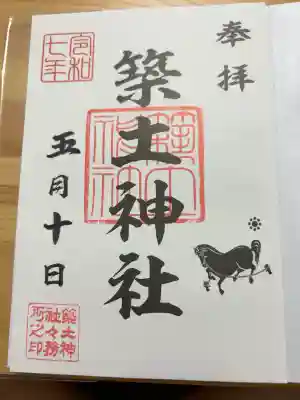 奉拝
築土神社
令和
七年
五月十日
築土神
社々務
所之印